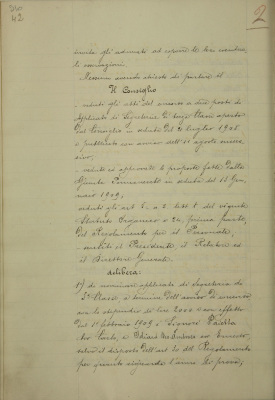 2
42
invita gli adunati ad esporre le loro eventuali
osservazioni.
Nessuno avendo chiesto di parlare il
Il Consiglio
veduti gli atti del concorso a due posti di
Applicato di Segreteria di terza classe aperto
dal Consiglio in seduta del 2 luglio 1908
e pubblicato con avviso dell'11 agosto
vedute ed approvate le proposte fatte dalla
Giunta Permanente in seduta del 16 Gen
naio 1909;
veduti gli art. 6 e 2 del vigente
Statuto Organico e 20, primo parte,
del Regolamento per il Personale,
udito il Presidente, il Relatore ed
il Direttore Generale
delibera:
1) di nominare applicati di Segreteria di
3ª Classe, a termini dell'avviso di concorso
con lo stipendio di lire 2000 e con effetto
dal 1º febbraio 1909, i Signori
Carlo, e
salvo il disposto dell'art. 20 del Regolamento
per quanto riguarda l'anno di prova;